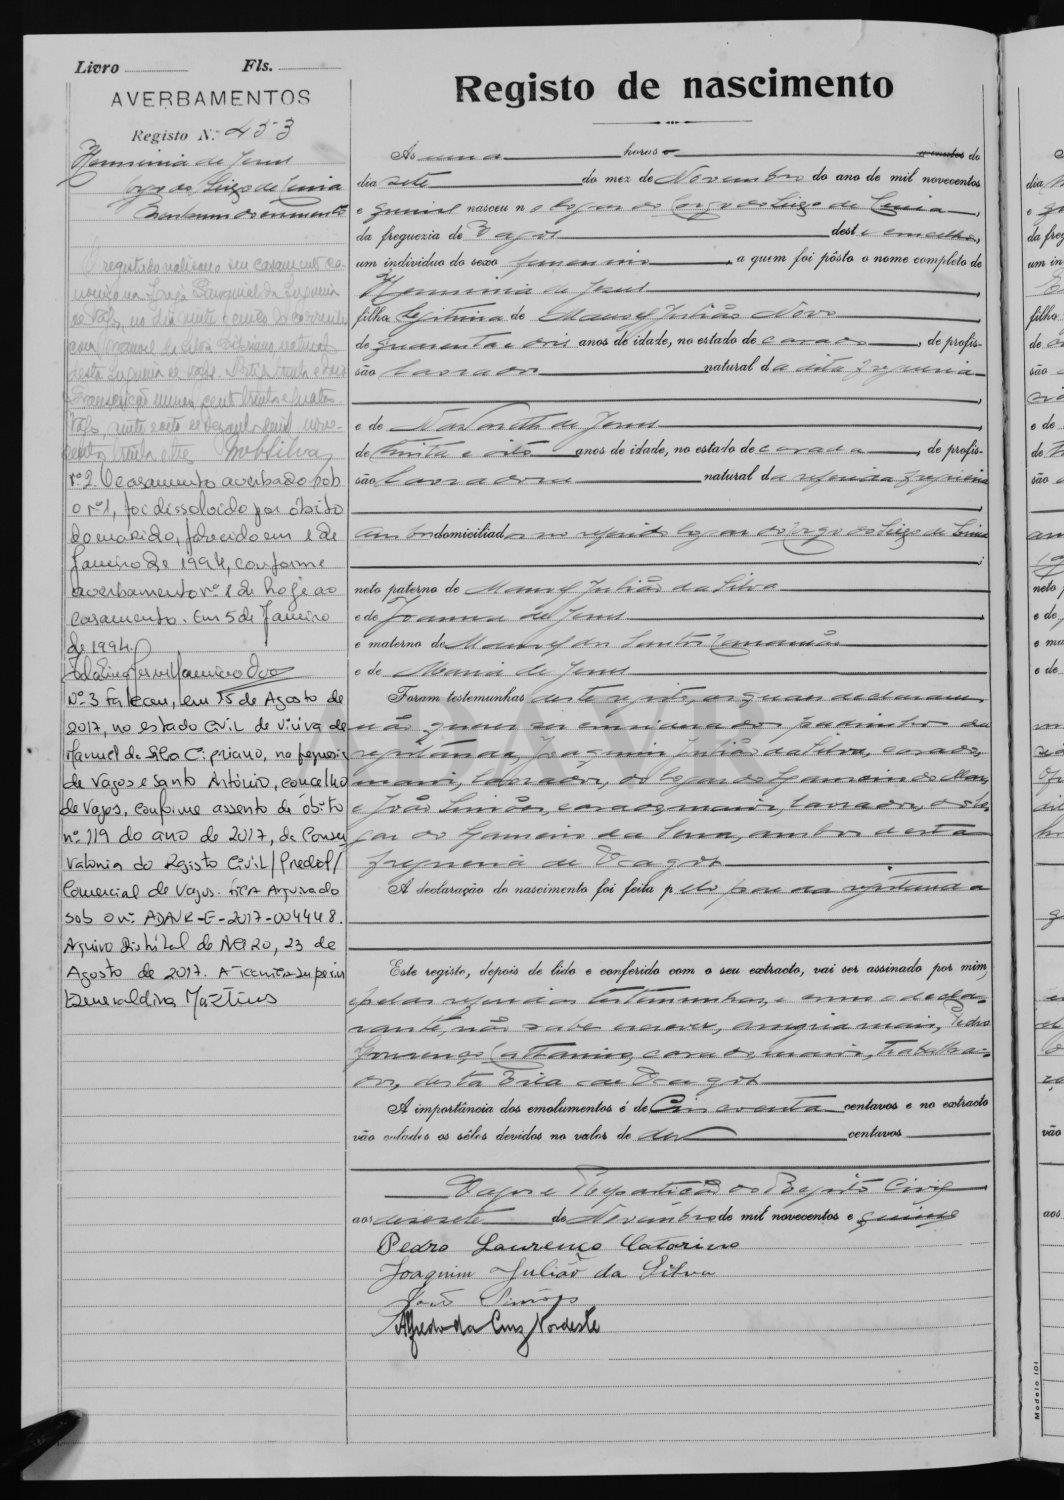 Livro Fls.
AVERBAMENTOS
Registo N.º 453
Herminia de Jesus
Corgo do Seixo de Cima
O registado realisou o seu casamento ca-
nonico na Igreja Paroquial da freguesia
de Vagos, no dia vinte e cinco do corrente
com Manuel da Silva Cipriano, natural
desta freguesia de Vagos.
Transcrição numero cento trinta e quatro.
Vagos, vinte e oito de nove-
centos trinta e tres
Nº 2 O casamento averbado sob
o nº 1, foi dissolvido por óbito
do marido, falecido em 1 de
Janeiro de 1994, conforme
averbamento nº 1 de hoje ao
casamento. Em 5 de Janeiro
de 1994.
Nº 3 Faleceu, em 15 de Agosto de
2017, no estado civil de viúva de
Manuel da Silva Cipriano, na freguesia
de Vagos e Santo António, concelho
de Vagos, conforme assento de óbito
nº 119 do ano de 2017, da Conser
vatória do Registo Civil/Predial/
Comercial de Vagos. Fica Arquivado
sob o nº ADAVR-E-2017-004448.
Arquivo Distrital de Aveiro, 23 de
Agosto de 2017. A Técnica Superior
Esmeraldina Martins
Registo de nascimento
As uma horas minutos do
dia sete do mez de Novembro do ano de mil novecentos
e quinze nasceu no logar do Corgo do Seixo de Cima,
da freguezia de Vagos deste concelho,
um individuo do sexo femenino, a quem foi pôsto o nome completo de
Herminia de Jesus
filha legitima de Manoel Julião Novo
de quarenta e dois anos de idade, no estado de casado, de profis-
são lavrador natural da dita freguesia
e de de Jesus
de trinta e oito anos de idade, no estado de casada, de profis-
são lavradora natural da referida freguesia
ambos domiciliados no referido logar do Corgo do Seixo de Cima
neto paterno de Manoel Julião da Silva
e de Joanna de Jesus
e materno de Manoel dos Santos
e de Maria de Jesus
Foram testemunhas deste registo, as quaes declararam
não querer ser considerados padrinhos da
registanda, Joaquim Julião da Silva, casado,
maior, lavrador, do logar do Gameiro do Mar,
e João Simões, casado, maior, lavrador, do lo-
gar do Gameiro da Serra, ambos desta
freguesia de Vagos
A declaração do nascimento foi feita pelo pae da registanda
Este registo, depois de lido e conferido com o seu extracto, vai ser assinado por mim,
e pelas referidas testemunhas, e como o decla-
rante não sabe escrever, assigna mais, Pedro
Lourenço Catharino, casado, maior, trabalha-
dor, desta Vila de Vagos
A importância dos emolumentos é de Cincoenta centavos e no extracto
vão colados os sêlos devidos no valor de dez centavos
Vagos e Repartição do Registo Civil
aos dezesete de Novembro de mil novecentos e quinze
Pedro Lourenço Catarino
Joaquim Julião da Silva
João Simões
Alfredo da Cruz Nordeste
Modelo 101